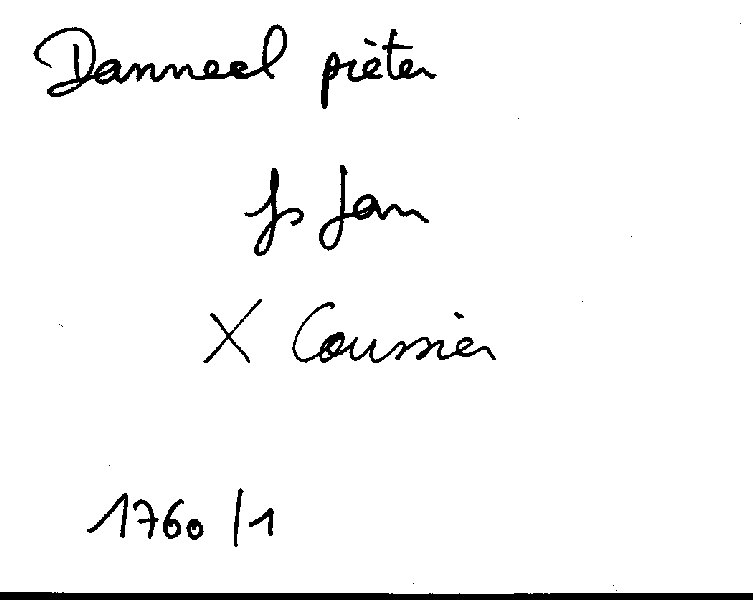 Danneel pieter
fs Jan
X Coussier
1760/1